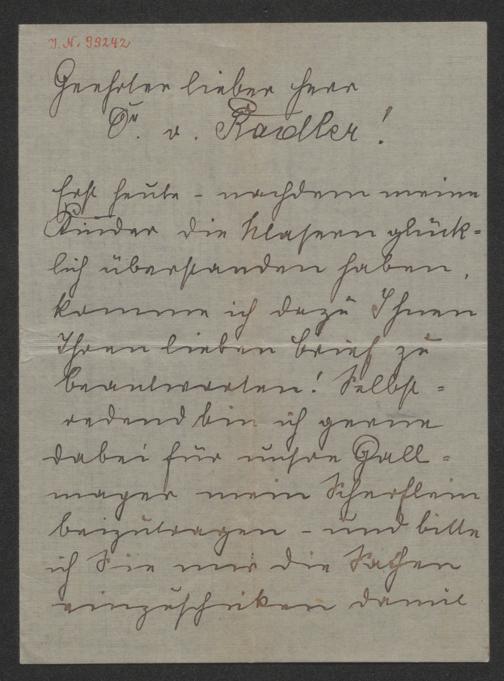 I. N. 99242
Geehrter lieber Herr
Dr. v. Radler!
Erst heute - nachdem meine
Kinder die Masern glück=
lich überstanden haben,
komme ich dazu Ihnen
Ihren lieben Brief zu
beantworten! Selbst=
redend bin ich gerne
dabei für unsre Gall=
mayer mein Scherflein
beizutragen - und bitte
ich Sie mir die Sachen
einzuschiken damit